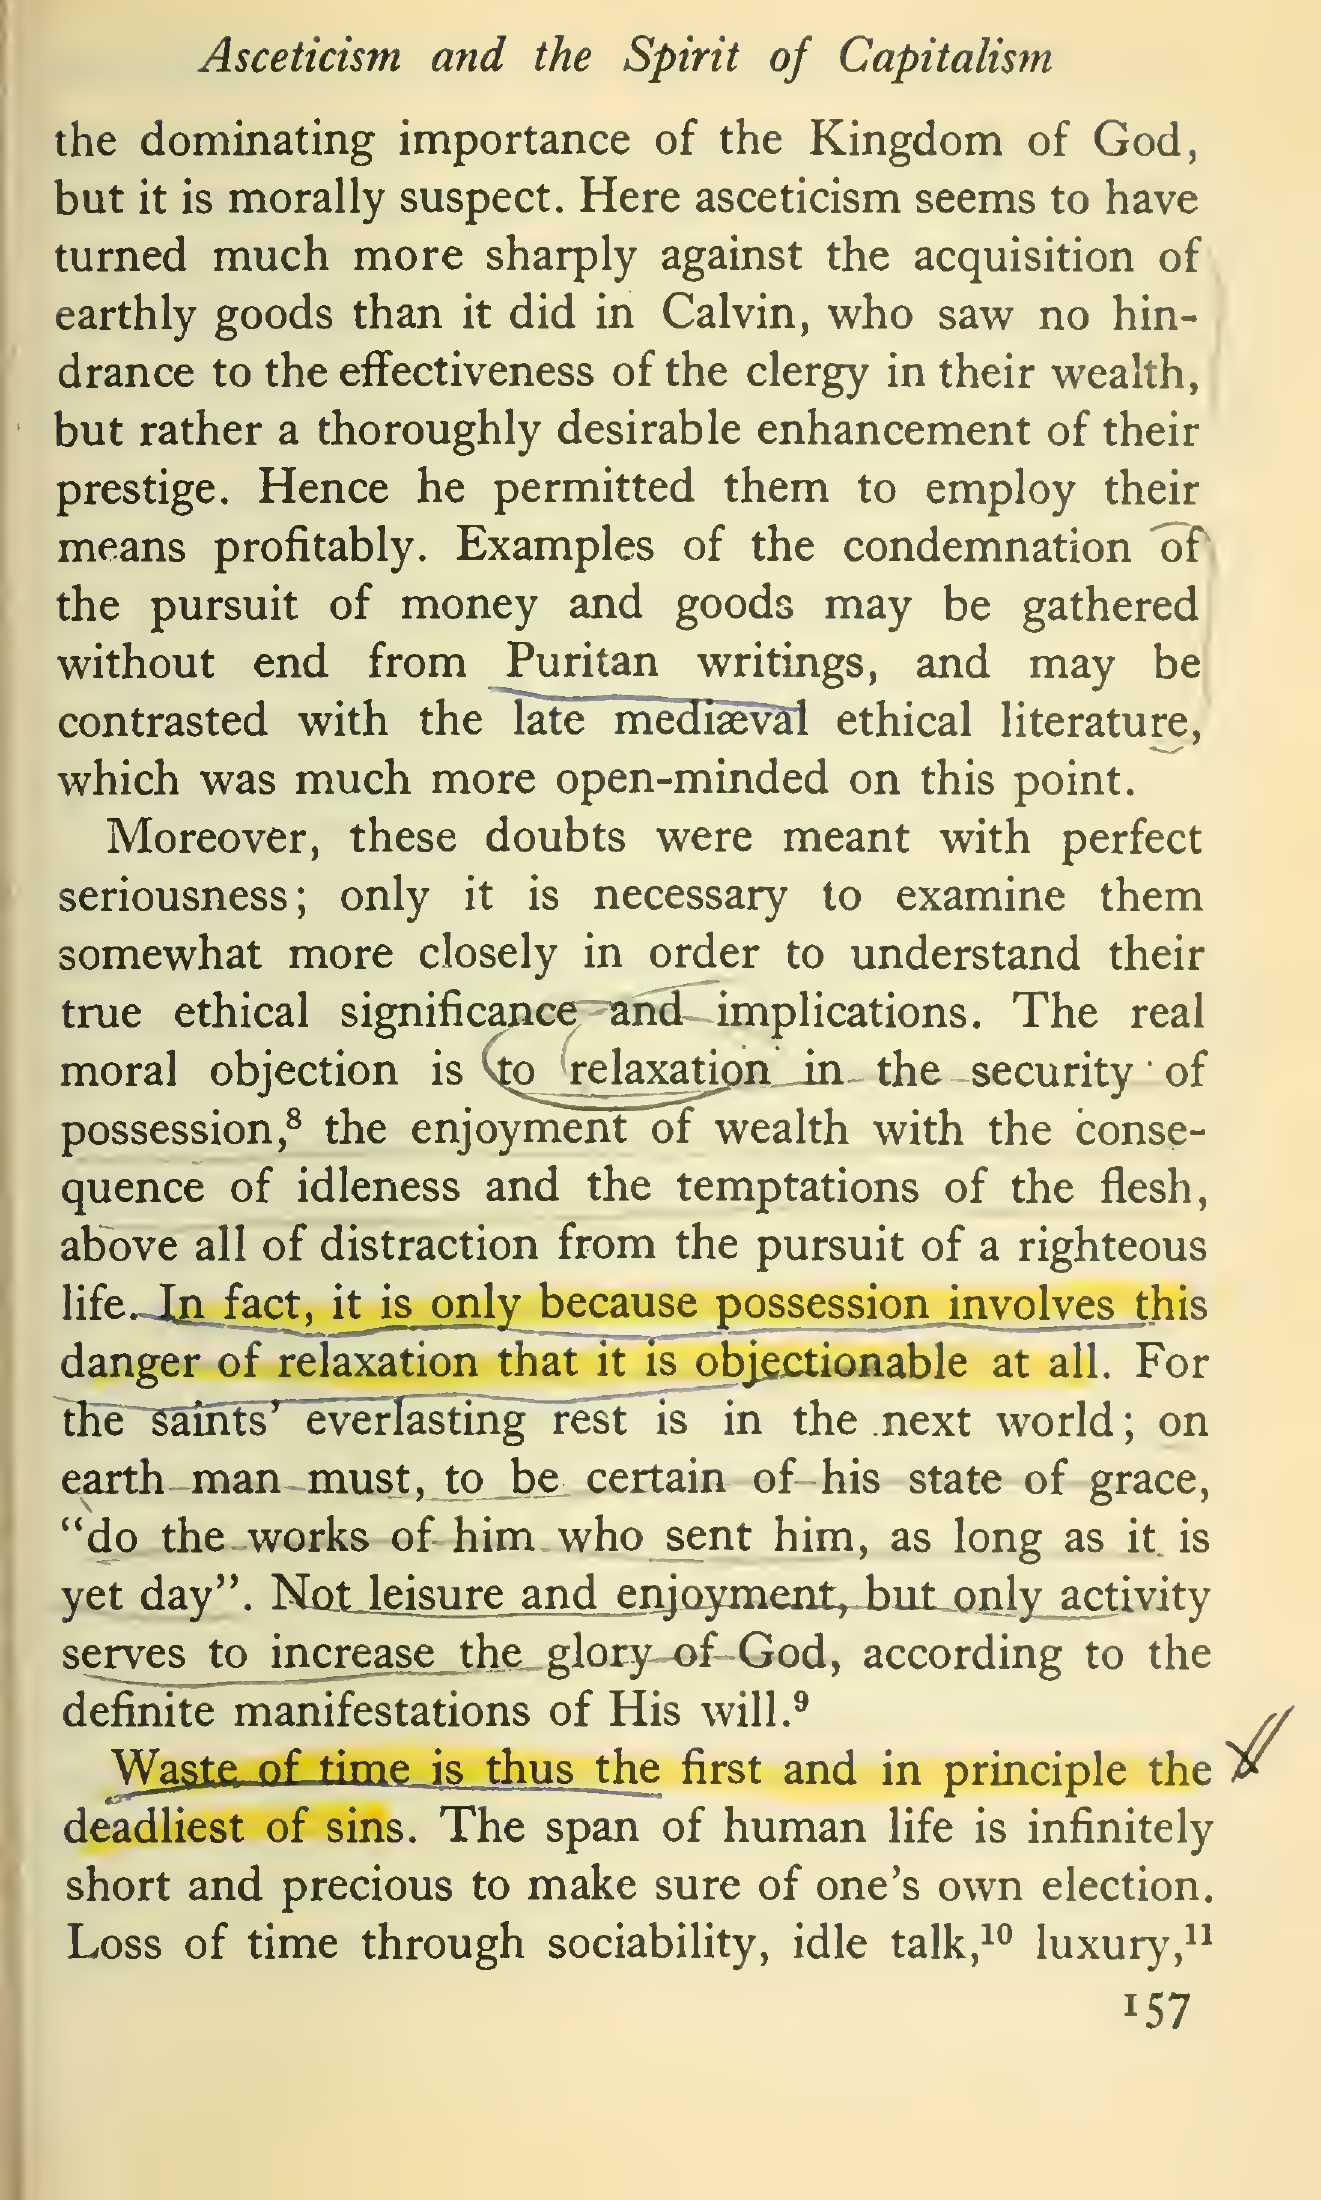 Asceticism and the Spirit of Capitalism
the dominating importance of the Kingdom of God,
but it is morally suspect. Here asceticism seems to have
turned much more sharply against the acquisition of
earthly goods than it did in Calvin, who saw no hin-
drance to the effectiveness of the clergy in their wealth,
but rather a thoroughly desirable enhancement of their
prestige. Hence he permitted them to employ their
means profitably. Examples of the condemnation of
the pursuit of money and goods may be gathered
without end from Puritan writings, and may be
contrasted with the late mediæval ethical literature,
which was much more open-minded on this point.
Moreover, these doubts were meant with perfect
seriousness; only it is necessary to examine them
somewhat more closely in order to understand their
true ethical significance and implications. The real
moral objection is to relaxation in the security of
possession,⁸ the enjoyment of wealth with the conse-
quence of idleness and the temptations of the flesh,
above all of distraction from the pursuit of a righteous
life. In fact, it is only because possession involves this
danger of relaxation that it is objectionable at all. For
the saints’ everlasting rest is in the next world; on
earth man must, to be certain of his state of grace,
“do the works of him who sent him, as long as it is
yet day”. Not leisure and enjoyment, but only activity
serves to increase the glory of God, according to the
definite manifestations of His will.⁹
Waste of time is thus the first and in principle the
deadliest of sins. The span of human life is infinitely
short and precious to make sure of one’s own election.
Loss of time through sociability, idle talk,¹⁰ luxury,¹¹
157